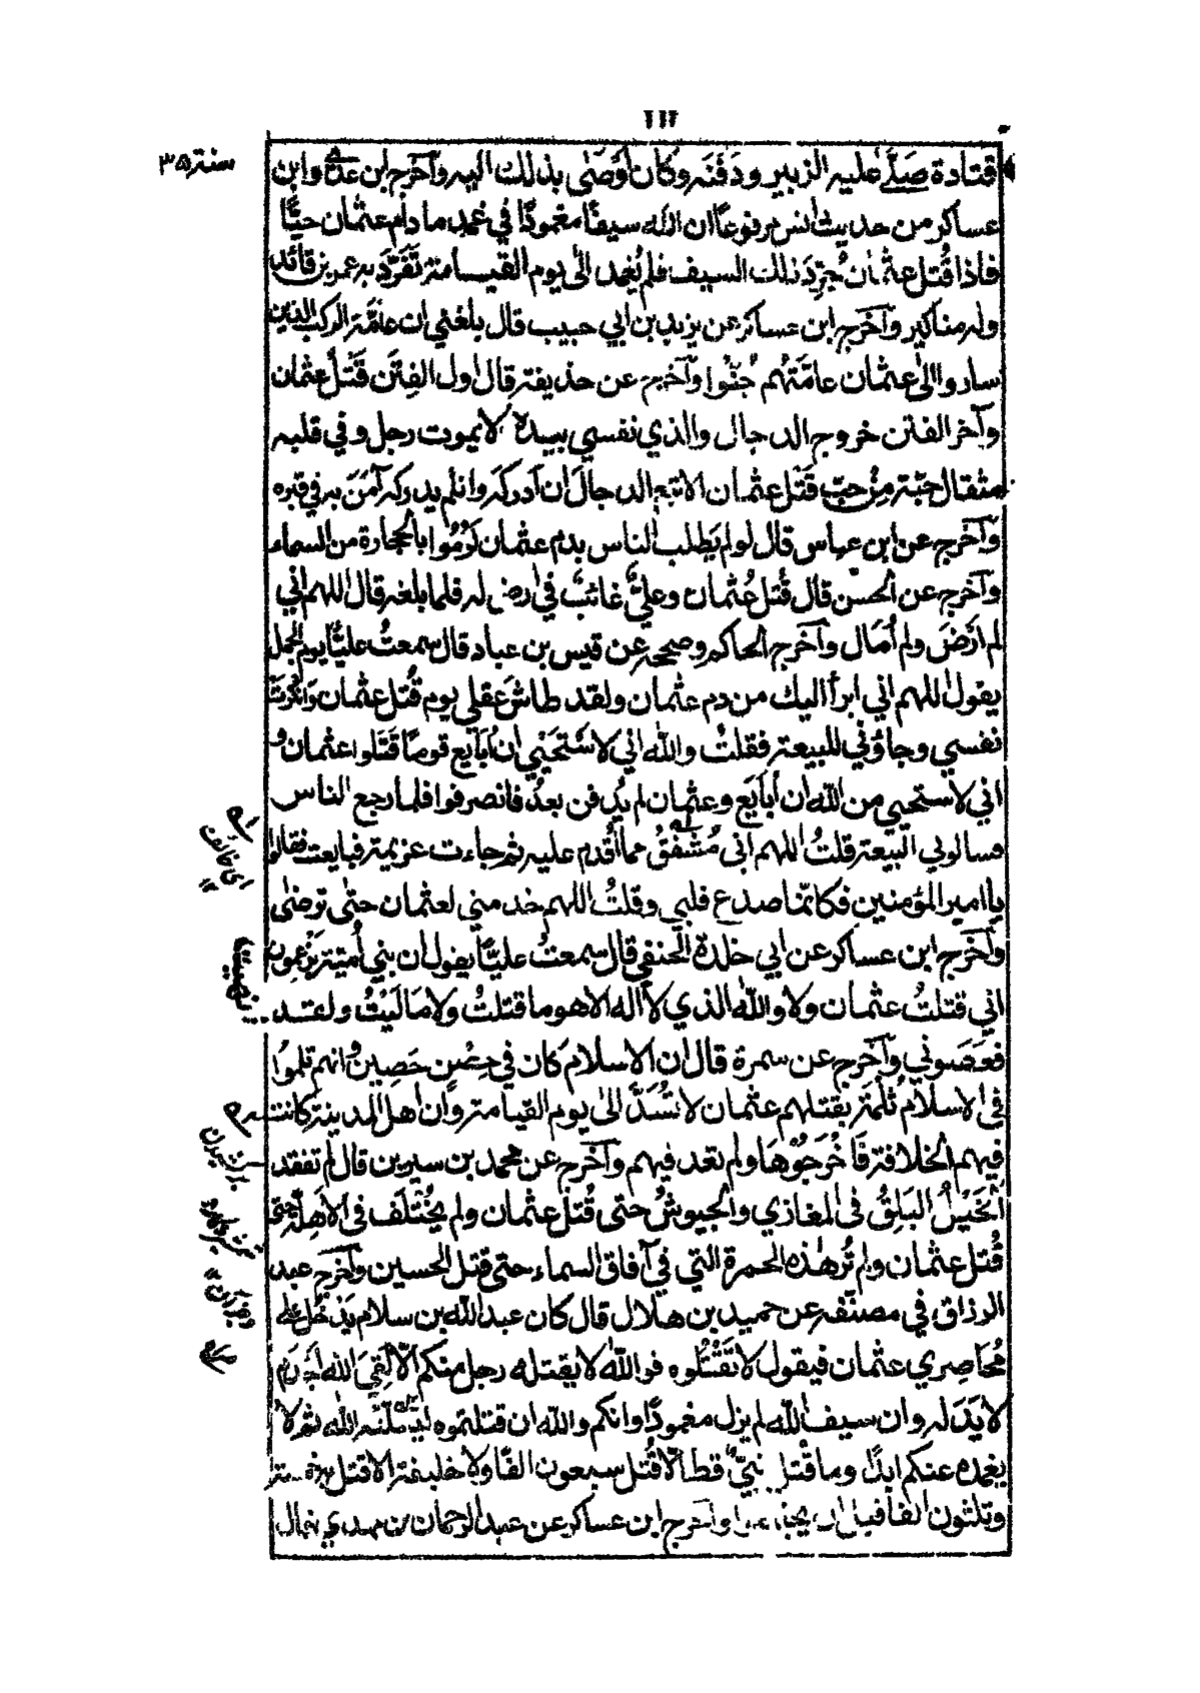 ١١٢
سنة ٣٥
قتادة صلّى عليه الزبير ودَفَنَه وكان اَوْصٰى بذلك اليه وآخرج ابن عدي وابن
عساكر من حديث انس مرفوعًا ان لله سيفًا مغمودًا في غمده ما دام عثمان حيًّا
فاذا قُتل عثمان جُرِّدَ ذلك السيف فلم يُغمد الىٰ يوم القيامة تفَرَّدَ به عمر بن قائد
وله مناكير وآخرج ابن عساكر عن يزيد بن ابي حبيب قال بلغني ان عامّة الركب الذين
ساروا الىٰ عثمان عامّتهم جُنّوا وآخرج عن حذيفة قال اول الفِتَن قَتْل عثمان
وآخر الفتن خروج الدجال والذي نفسي بيده لا يموت رجل وفي قلبه
مثقال حبّة مِنْ حبّ قَتْل عثمان الا تبع الدجالَ ان اَدركَه وان لم يدركه آمَنَ به في قبره
وآخرج عن ابن عباس قال لو لم يَطلب الناس بدم عثمان لَرُمُوا بالحجارة من السماء
وآخرج عن الحسن قال قُتل عُثمان وعليٌّ غائبٌ في ارض له فلما بلغه قال اللهم اني
لم ارْضَ ولم اُمَال وآخرج الحاكم وصححه عن قيس بن عباد قال سمعتُ عليًّا يوم الجمل
يقول اللهم اني ابرأ اليك من دم عثمان ولقد طاشَ عقلي يوم قُتل عثمان وَانكرتُ
نفسي وجاؤني للبيعة فقلتُ والله اني لاَستَحْيِي ان اُبَايع قومًا قَتَلوا عثمان و
اني لاستحيي من الله ان اُبايَع وعثمان لم يُدفن بعدُ فانصرفوا فلما رجع الناس
فسالوني البيعة قلتُ اللهم اني مُشْفِقٌ مما اُقدم عليه ثم جاءت عزيمة فبايعت فقالوا
يا امير المؤمنين فكانّما صدع قلبي وقلتُ اللهم خذ مني لعثمان حتٰى ترضٰى
وآخرج ابن عساكر عن ابي خلدة الحنفي قال سمعتُ عليًّا يقول ان بني اُمية يزعمون
اني قتلتُ عثمان ولا والله الذي لا اله الا هو ما قتلتُ ولا مَالَيْتُ ولقد
فعَصَوني وآخرج عن سمرة قال ان الاسلام كان في حِصْنٍ حَصِين وانهم ثلموا
في الاسلام ثُلْمَة بقتلهم عثمان لا تُسَدُّ الىٰ يوم القيامة وان اهل المدينة كانت
فيهم الخلافة فَاَخْرَجُوْهَا ولم تعد فيهم وآخرج عن محمد بن سيرين قال لم تفقد
الخَيْلُ البَلِقُ في المغازي والجيوشُ حتى قُتل عثمان ولم يُخْتَلَف في الاَهِلّة حتى
قُتل عثمان ولم تُر هٰذه الحمرة التي في آفاق السماء حتى قتل الحسين وآخرج عبد
الرزاق في مصنّفه عن حميد بن هلال قال كان عبد الله بن سلام يَدْخُل على
مُحَاصِري عثمان فيقول لا تَقْتُلوه فوالله لا يقتله رجل منكم اِلّا لَقِيَ الله اَجْذَم
لا يَدَ له وان سيف الله لم يزل مغمودًا وانكم والله ان قتلتموه ليَسُلّنّه الله ثم لا
يغمده عنكم ابدًا وما قُتل نبيٌّ قط الّا قُتل سبعون الفًا ولا خليفة الا قتل به خمسة
وثلثون الفا قبل ان يجتمعوا وآخرج ابن عساكر عن عبد الرحمان بن مهدي قال